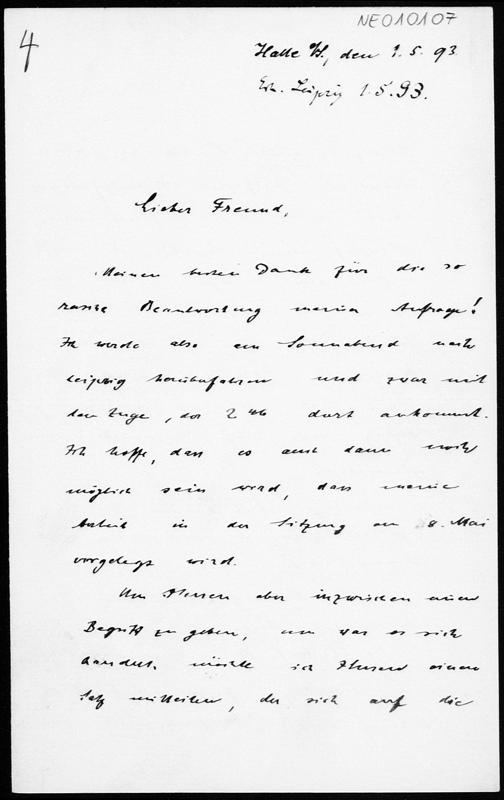 NE010107
4
Halle a/S., den 1.5.93.
Erh. Leipzig 1.5.93.
Lieber Freund,
Meinen besten Dank für die so
rasche Beantwortung meiner Anfrage!
Ich werde also am Sonnabend nach
Leipzig herüberfahren und zwar mit
dem Zuge, der 2 46 dort ankommt.
Ich hoffe, dass es auch dann noch
möglich sein wird, dass meine
Arbeit in der Sitzung am 8. Mai
vorgelegt wird.
Um Ihnen aber inzwischen einen
Begriff zu geben, um was es sich
handelt, möchte ich Ihnen einen
Satz mitteilen, der sich auf die